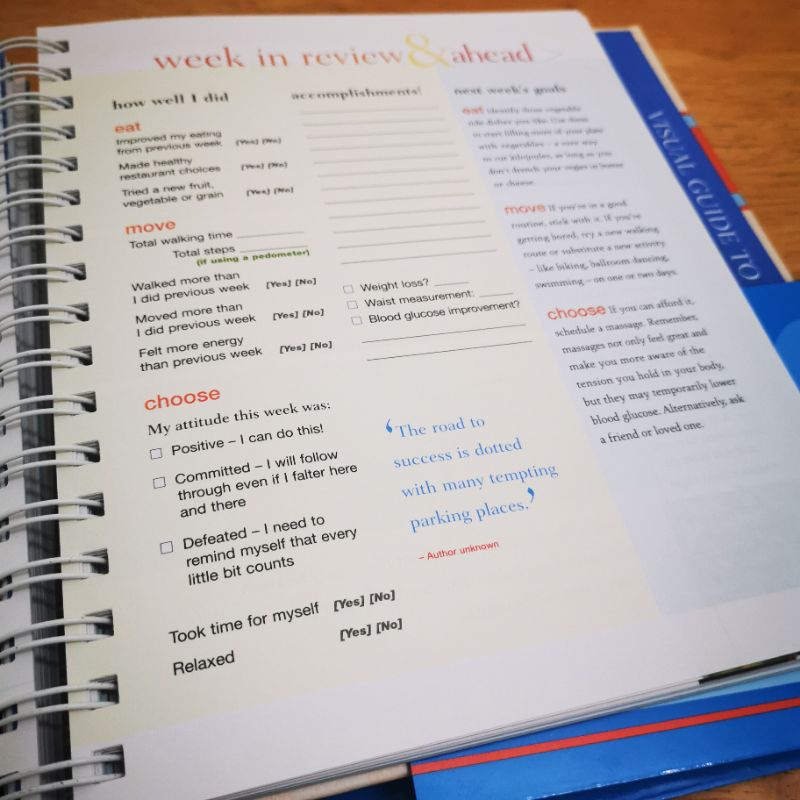 week in review & ahead
how well I did
eat
Improved my eating
from previous week [Yes] [No]
Made healthy
restaurant choices [Yes] [No]
Tried a new fruit,
vegetable or grain [Yes] [No]
move
Total walking time
Total steps
(if using a pedometer)
Walked more than
I did previous week [Yes] [No]
Moved more than
I did previous week [Yes] [No]
Felt more energy
than previous week [Yes] [No]
choose
My attitude this week was:
Positive – I can do this!
Committed – I will follow
through even if I falter here
and there
Defeated – I need to
remind myself that every
little bit counts
Took time for myself [Yes] [No]
Relaxed [Yes] [No]
accomplishments!
Weight loss?
Waist measurement:
Blood glucose improvement?
‘The road to
success is dotted
with many tempting
parking places.’
– Author unknown
next week's goals
eat Identify three vegetable
side dishes you like. Use them
to start filling more of your plate
with vegetables – a sure way
to cut kilojoules, as long as you
don't drench your veges in butter
or cheese.
move If you're in a good
routine, stick with it. If you're
getting bored, try a new walking
route or substitute a new activity
– like biking, ballroom dancing,
swimming – on one or two days.
choose If you can afford it,
schedule a massage. Remember,
massages not only feel great and
make you more aware of the
tension you hold in your body,
but they may temporarily lower
blood glucose. Alternatively, ask
a friend or loved one.
VISUAL GUIDE TO